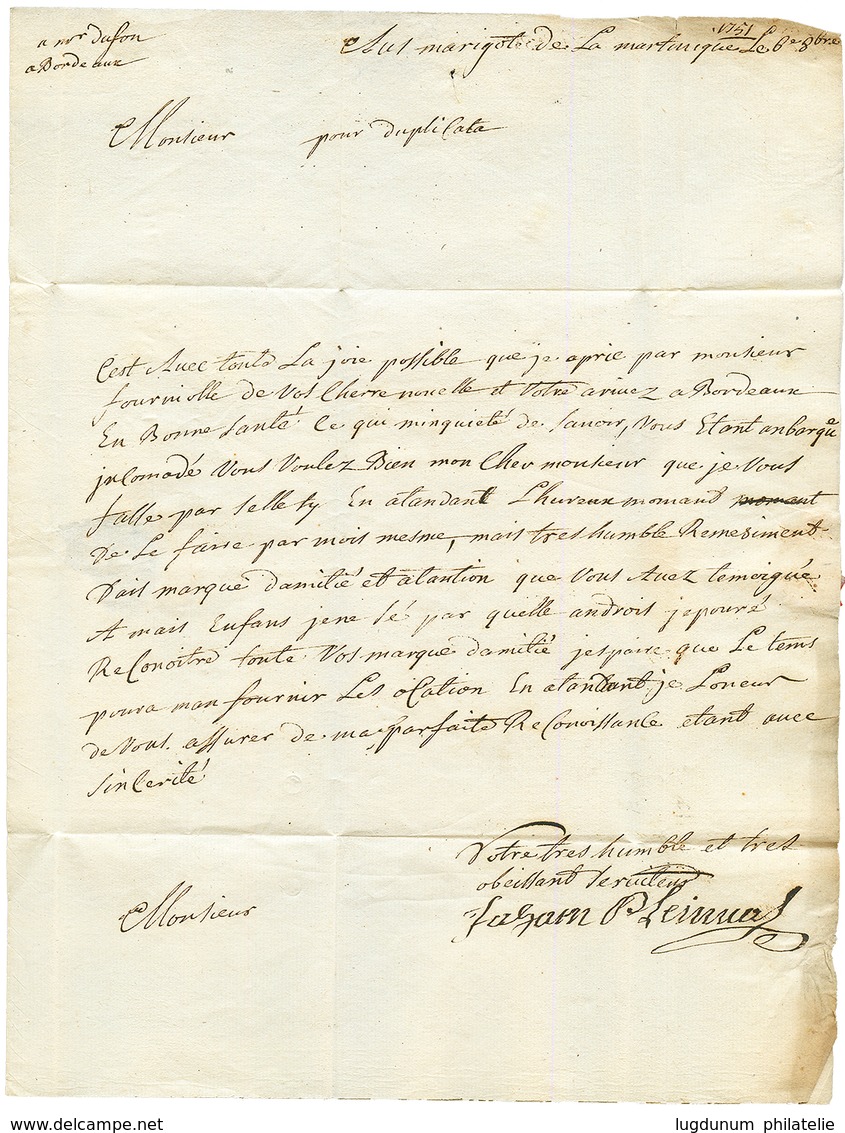 a mr dufon
a Bordeaux
1751
Aus marigots de La martinique Le 6e 8bre
Monsieur pour dupliCata
Cest Avec toutte La joie possible que je aprie par monsieur
fourniolle de Vos Cherre nouelle et Votre arivez a Bordeaux
En Bonne Santé Ce qui minquieté de Savoir, Vous Etant anbarqué
jnComodé Vous Voulez Bien mon Cher monsieur que je Vous
fasse par selle sy En atandant Lhureux momand moment
De Le faire par mois mesme, mais tres humble Remesiment
Dais marque damitié et atantion que Vous Avez temoigué
A mais Enfans je ne sé par quelle androit je pouré
ReConoitre toute Vos marque damitié jespaire que Le tems
poura man fournir Les oCation En atandant je Loneur
de Vous assurer de ma parfaite ReConoissance etant avec
SinCerité
Votre tres humble et tres
obeissant Serviteur
Monsieur
Jaham
www.delcampe.net
lugdunum philatelie